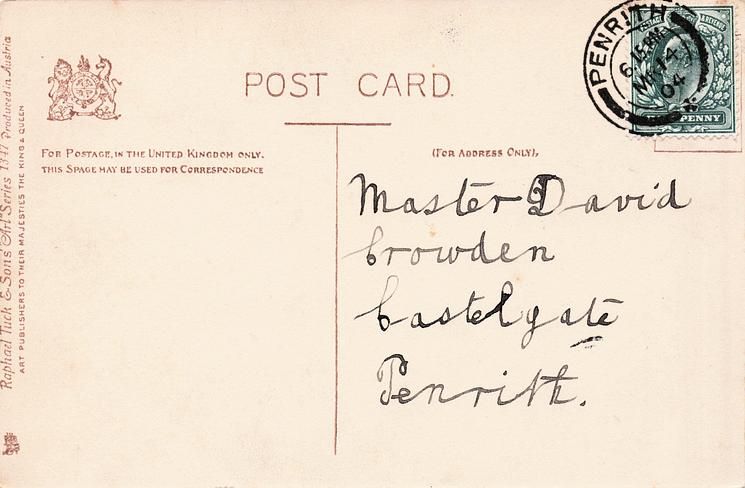 POST CARD.
FOR POSTAGE, IN THE UNITED KINGDOM ONLY.
THIS SPACE MAY BE USED FOR CORRESPONDENCE
(FOR ADDRESS ONLY),
Master David
Crowden
Castelgate
Penrith.
PENRITH
6.15 PM
04
POSTAGE & REVENUE
HALF PENNY
Raphael Tuck & Sons' "Art" Series 1347 Produced in Austria
ART PUBLISHERS TO THEIR MAJESTIES THE KING & QUEEN